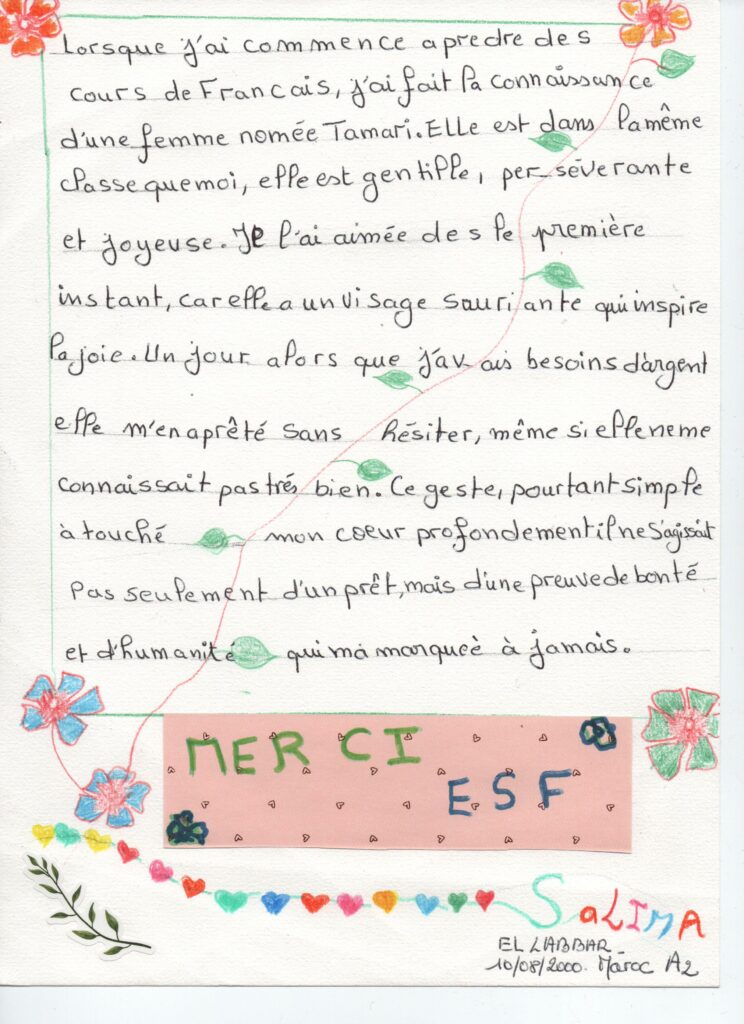 Lorsque j'ai commence apredre des
cours de Francais, j'ai fait la connaissance
d'une femme nomée Tamari. Elle est dans la même
classe que moi, elle est gentille, perséverante
et joyeuse. Je l'ai aimée des le première
instant, car elle a un visage souriante qui inspire
la joie. Un jour alors que j'avais besoins d'argent
elle m'en aprêté sans hésiter, même si elle ne me
connaissait pas trés bien. Ce geste, pourtant simple
à touché mon coeur profondement il ne s'agissait
Pas seulement d'un prêt, mais d'une preuve de bonté
et d'humanité qui ma marqucè à jamais.
MERCI
ESF
SaLIMA
EL LABBAR
10/08/2000. Maroc A2